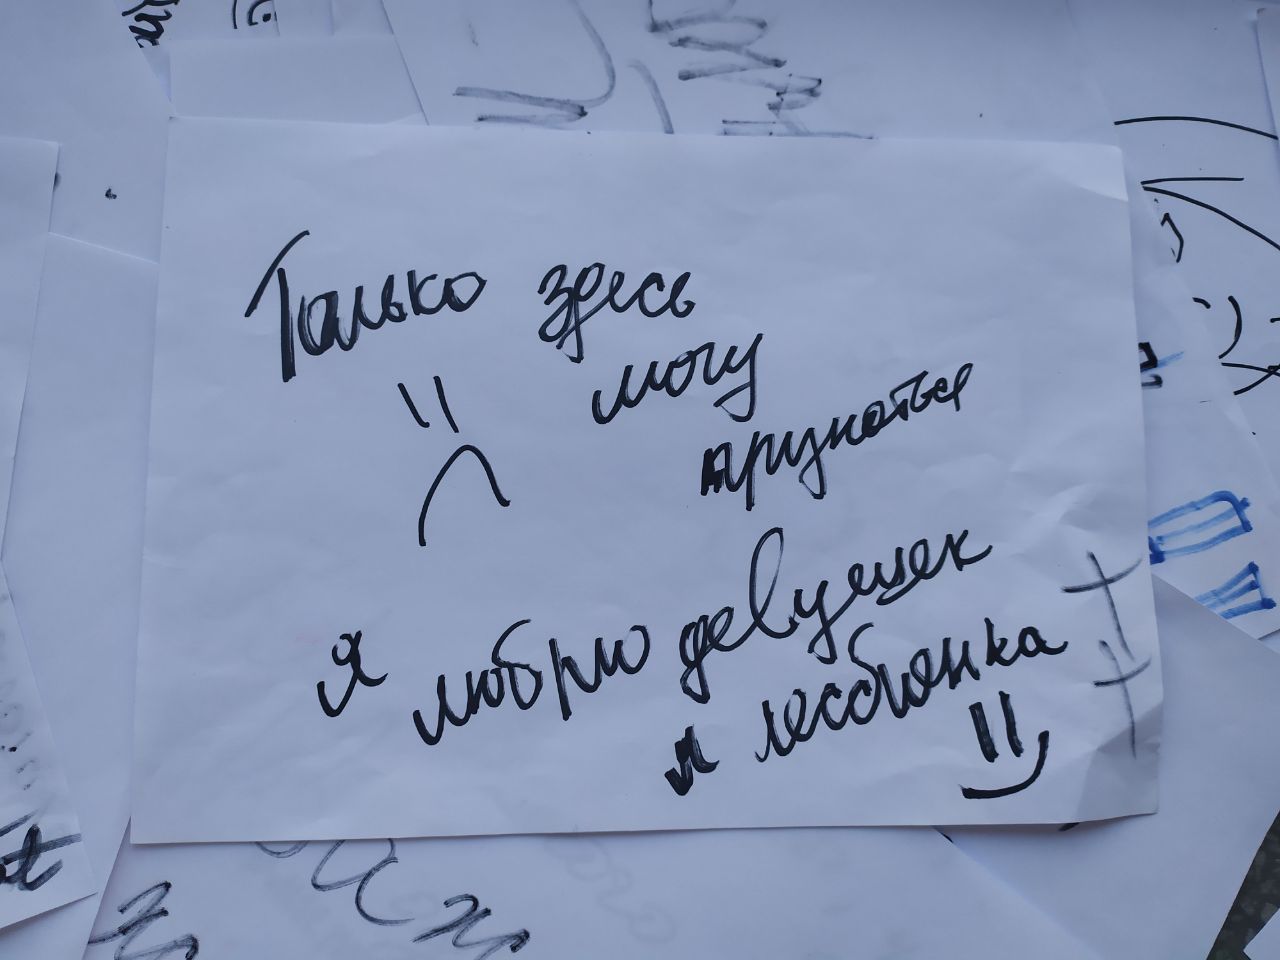 Только здесь
могу
признаться
я люблю девушек
я лесбиянка